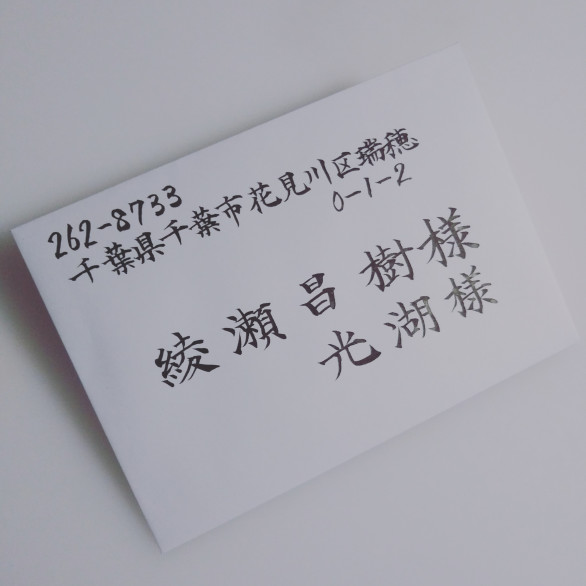 262-8733
千葉県千葉市花見川区瑞穂
0-1-2
綾瀬昌樹様
光湖様